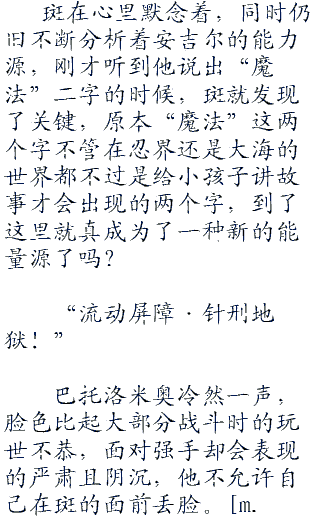 斑在心里默念着，同时仍
旧不断分析着安吉尔的能力
源，刚才听到他说出“魔
法”二字的时候，斑就发现
了关键，原本“魔法”这两
个字不管在忍界还是大海的
世界都不过是给小孩子讲故
事才会出现的两个字，到了
这里就真成为了一种新的能
量源了吗？
“流动屏障·针刑地
狱！”
巴托洛米奥冷然一声，
脸色比起大部分战斗时的玩
世不恭，面对强手却会表现
的严肃且阴沉，他不允许自
己在斑的面前丢脸。[m.